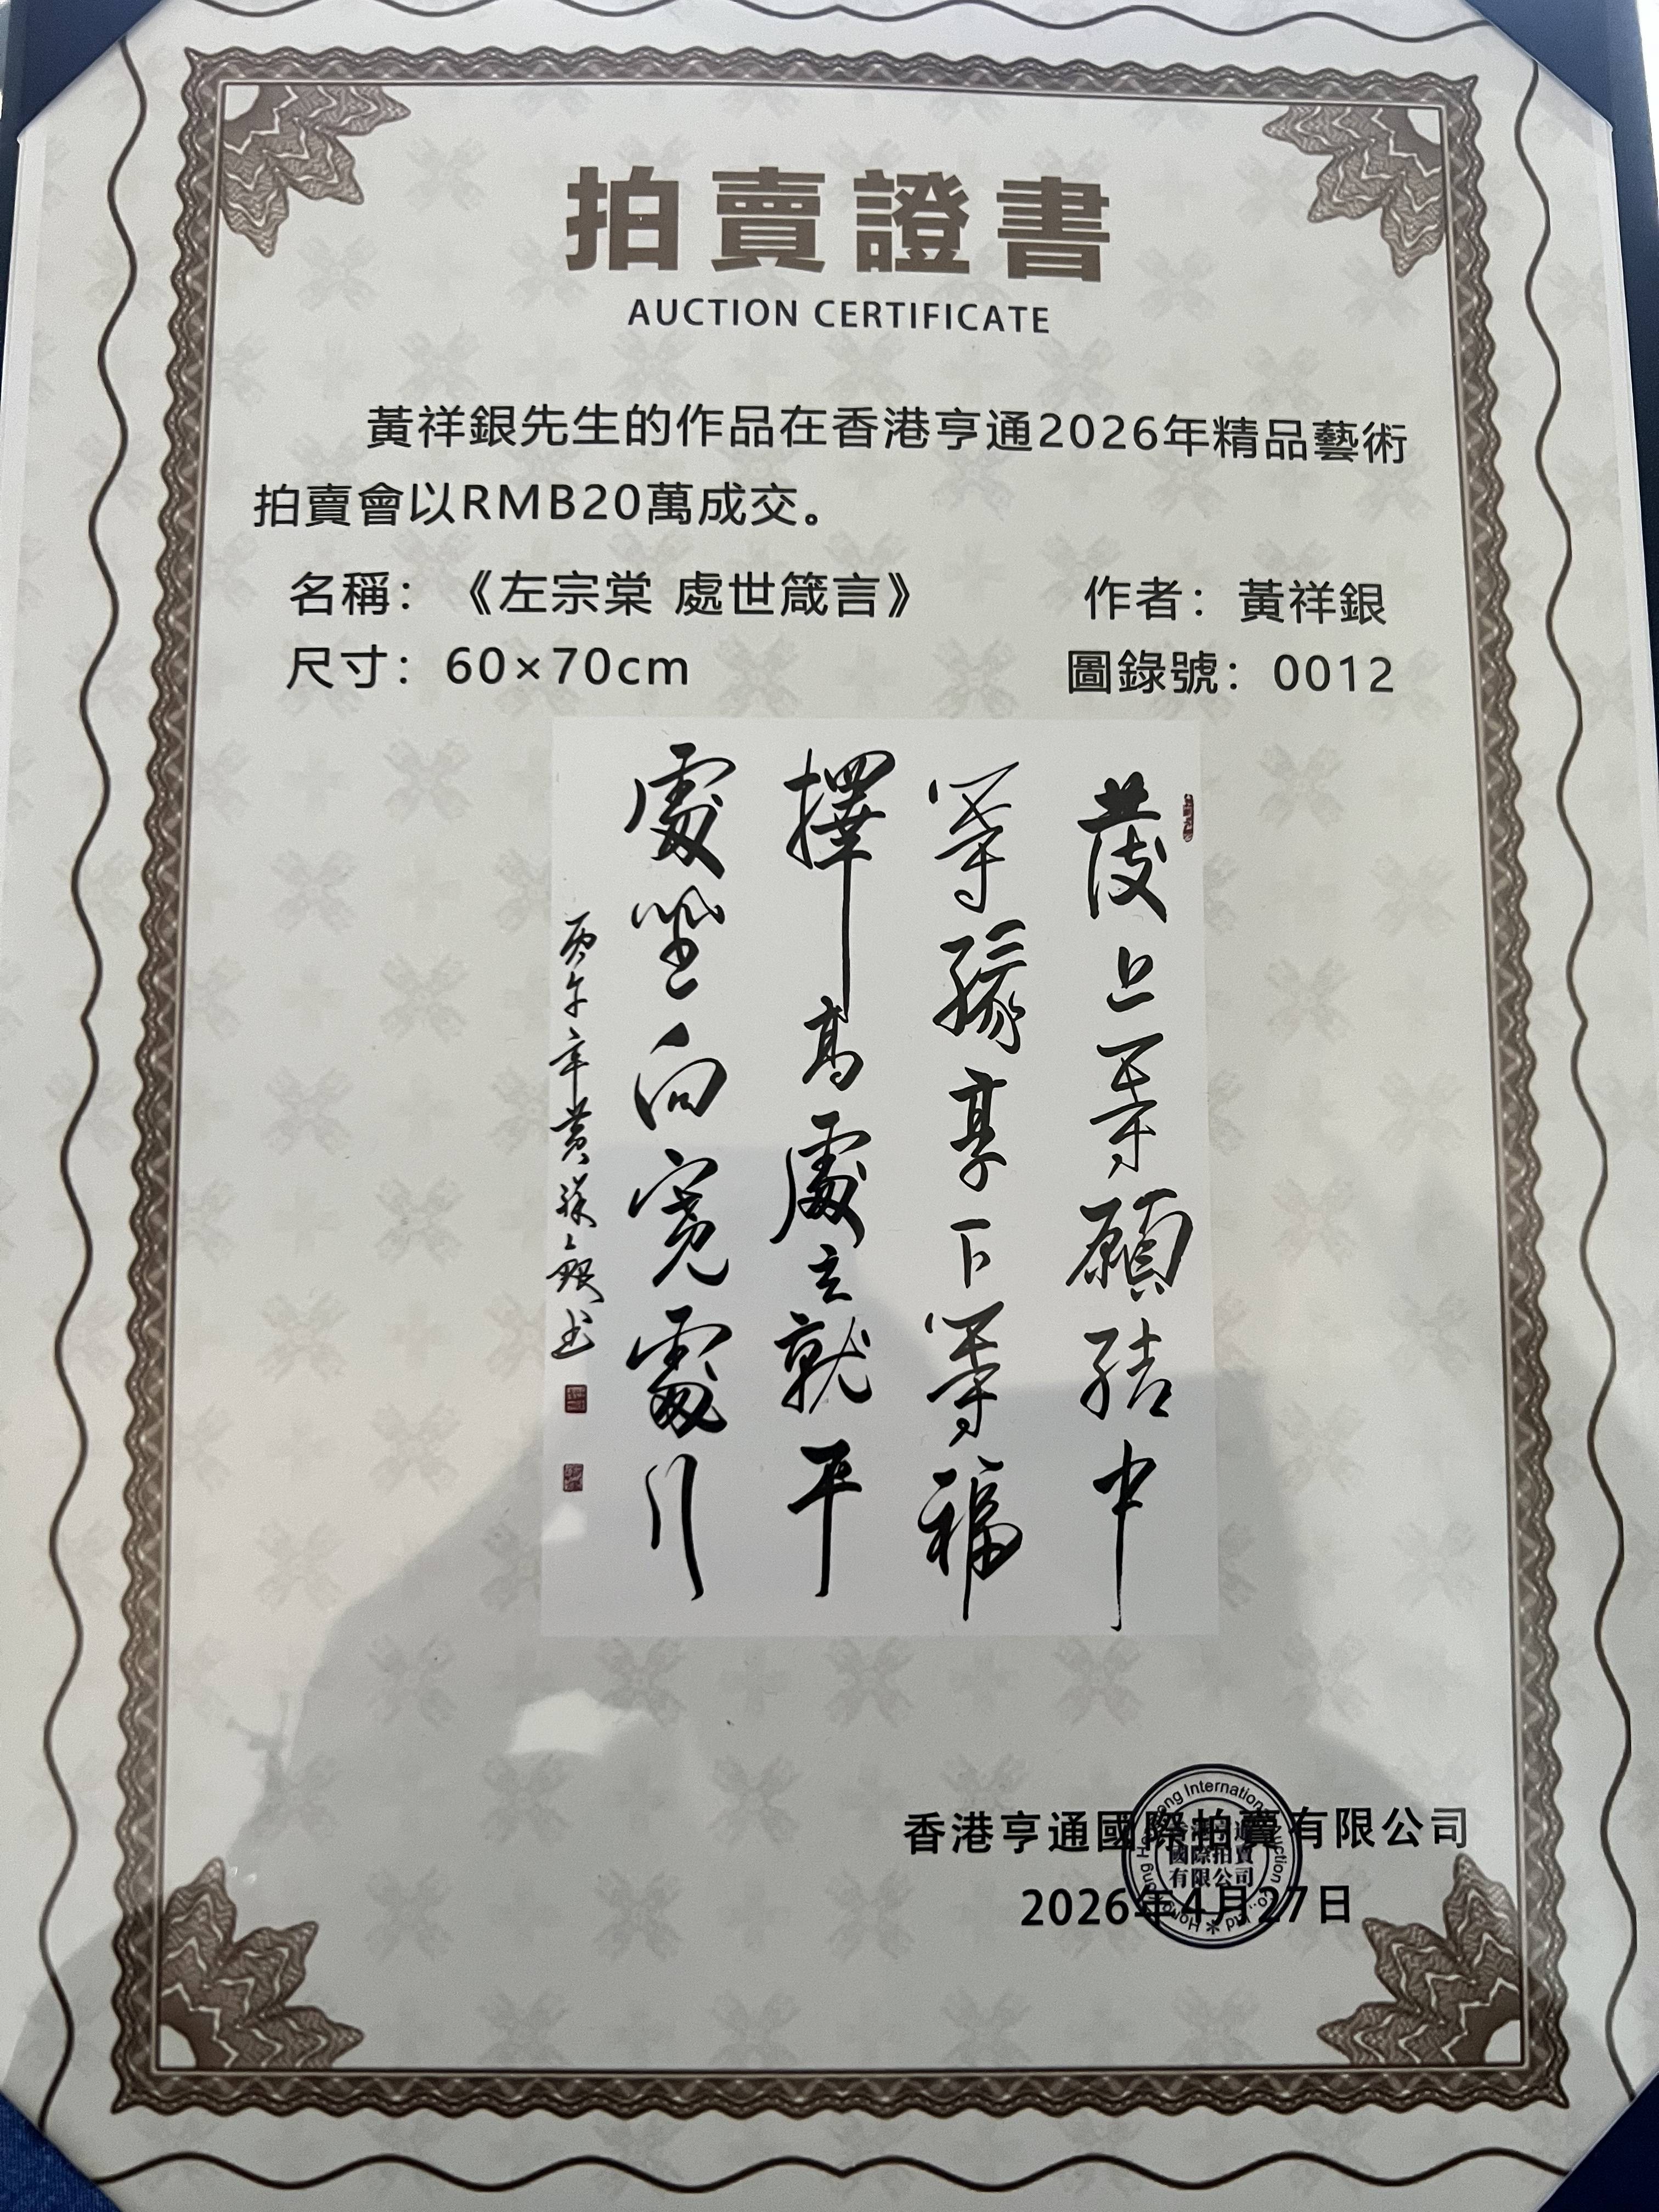 拍賣證書
AUCTION CERTIFICATE
黃祥銀先生的作品在香港亨通2026年精品藝術
拍賣會以RMB20萬成交。
名稱：《左宗棠 處世箴言》
作者：黃祥銀
尺寸：60×70cm
圖錄號：0012
發上等願結中
等緣享下等福
擇高處立就平
處坐向寬處行
丙午年黃祥銀書
香港亨通國際拍賣有限公司
2026年4月27日
國際拍賣
有限公司